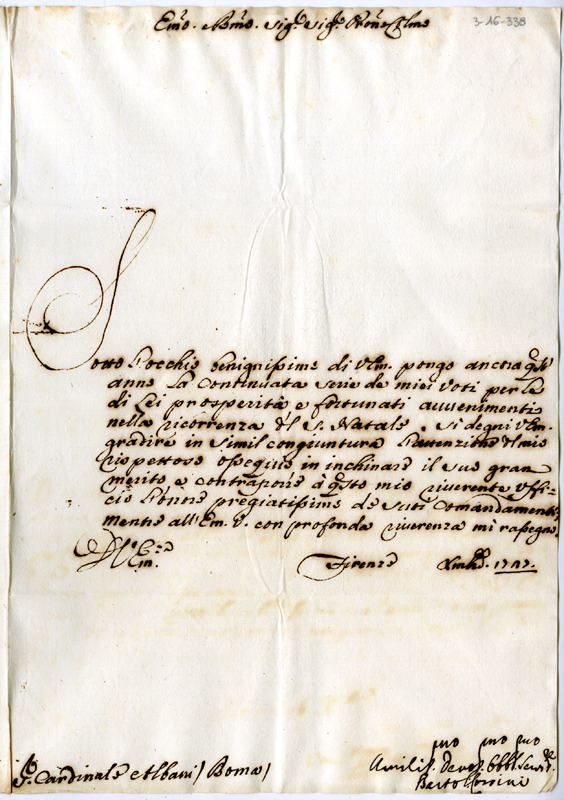 Em̃o. Rm̃o. Sig.r Sig.r Pro͠ne Col͠mo
3-16-338
Sotto l'occhio benignissimo di V.Em. pongo ancora q̃sto
anno la continuata serie de miei voti per la
di Lei prosperità e fortunati avvenimenti
nella ricorrenza del S. Natale. Si degni V.Em.
gradire in simil congiuntura l'attenzione del mio
rispettoso ossequio in inchinare il suo gran
merito, e contraporre à q̃sto mio riverente uffi-
cio l'onore pregiatissimo de suoi Comandamenti
mentre all'Em. V. con profonda riverenza mi rassegno.
Firenze 1747.
S.r Cardinale Albani / Roma /
mo mo mo
Umilis. Devot. Obbl. Serv.re
Barto Corsini